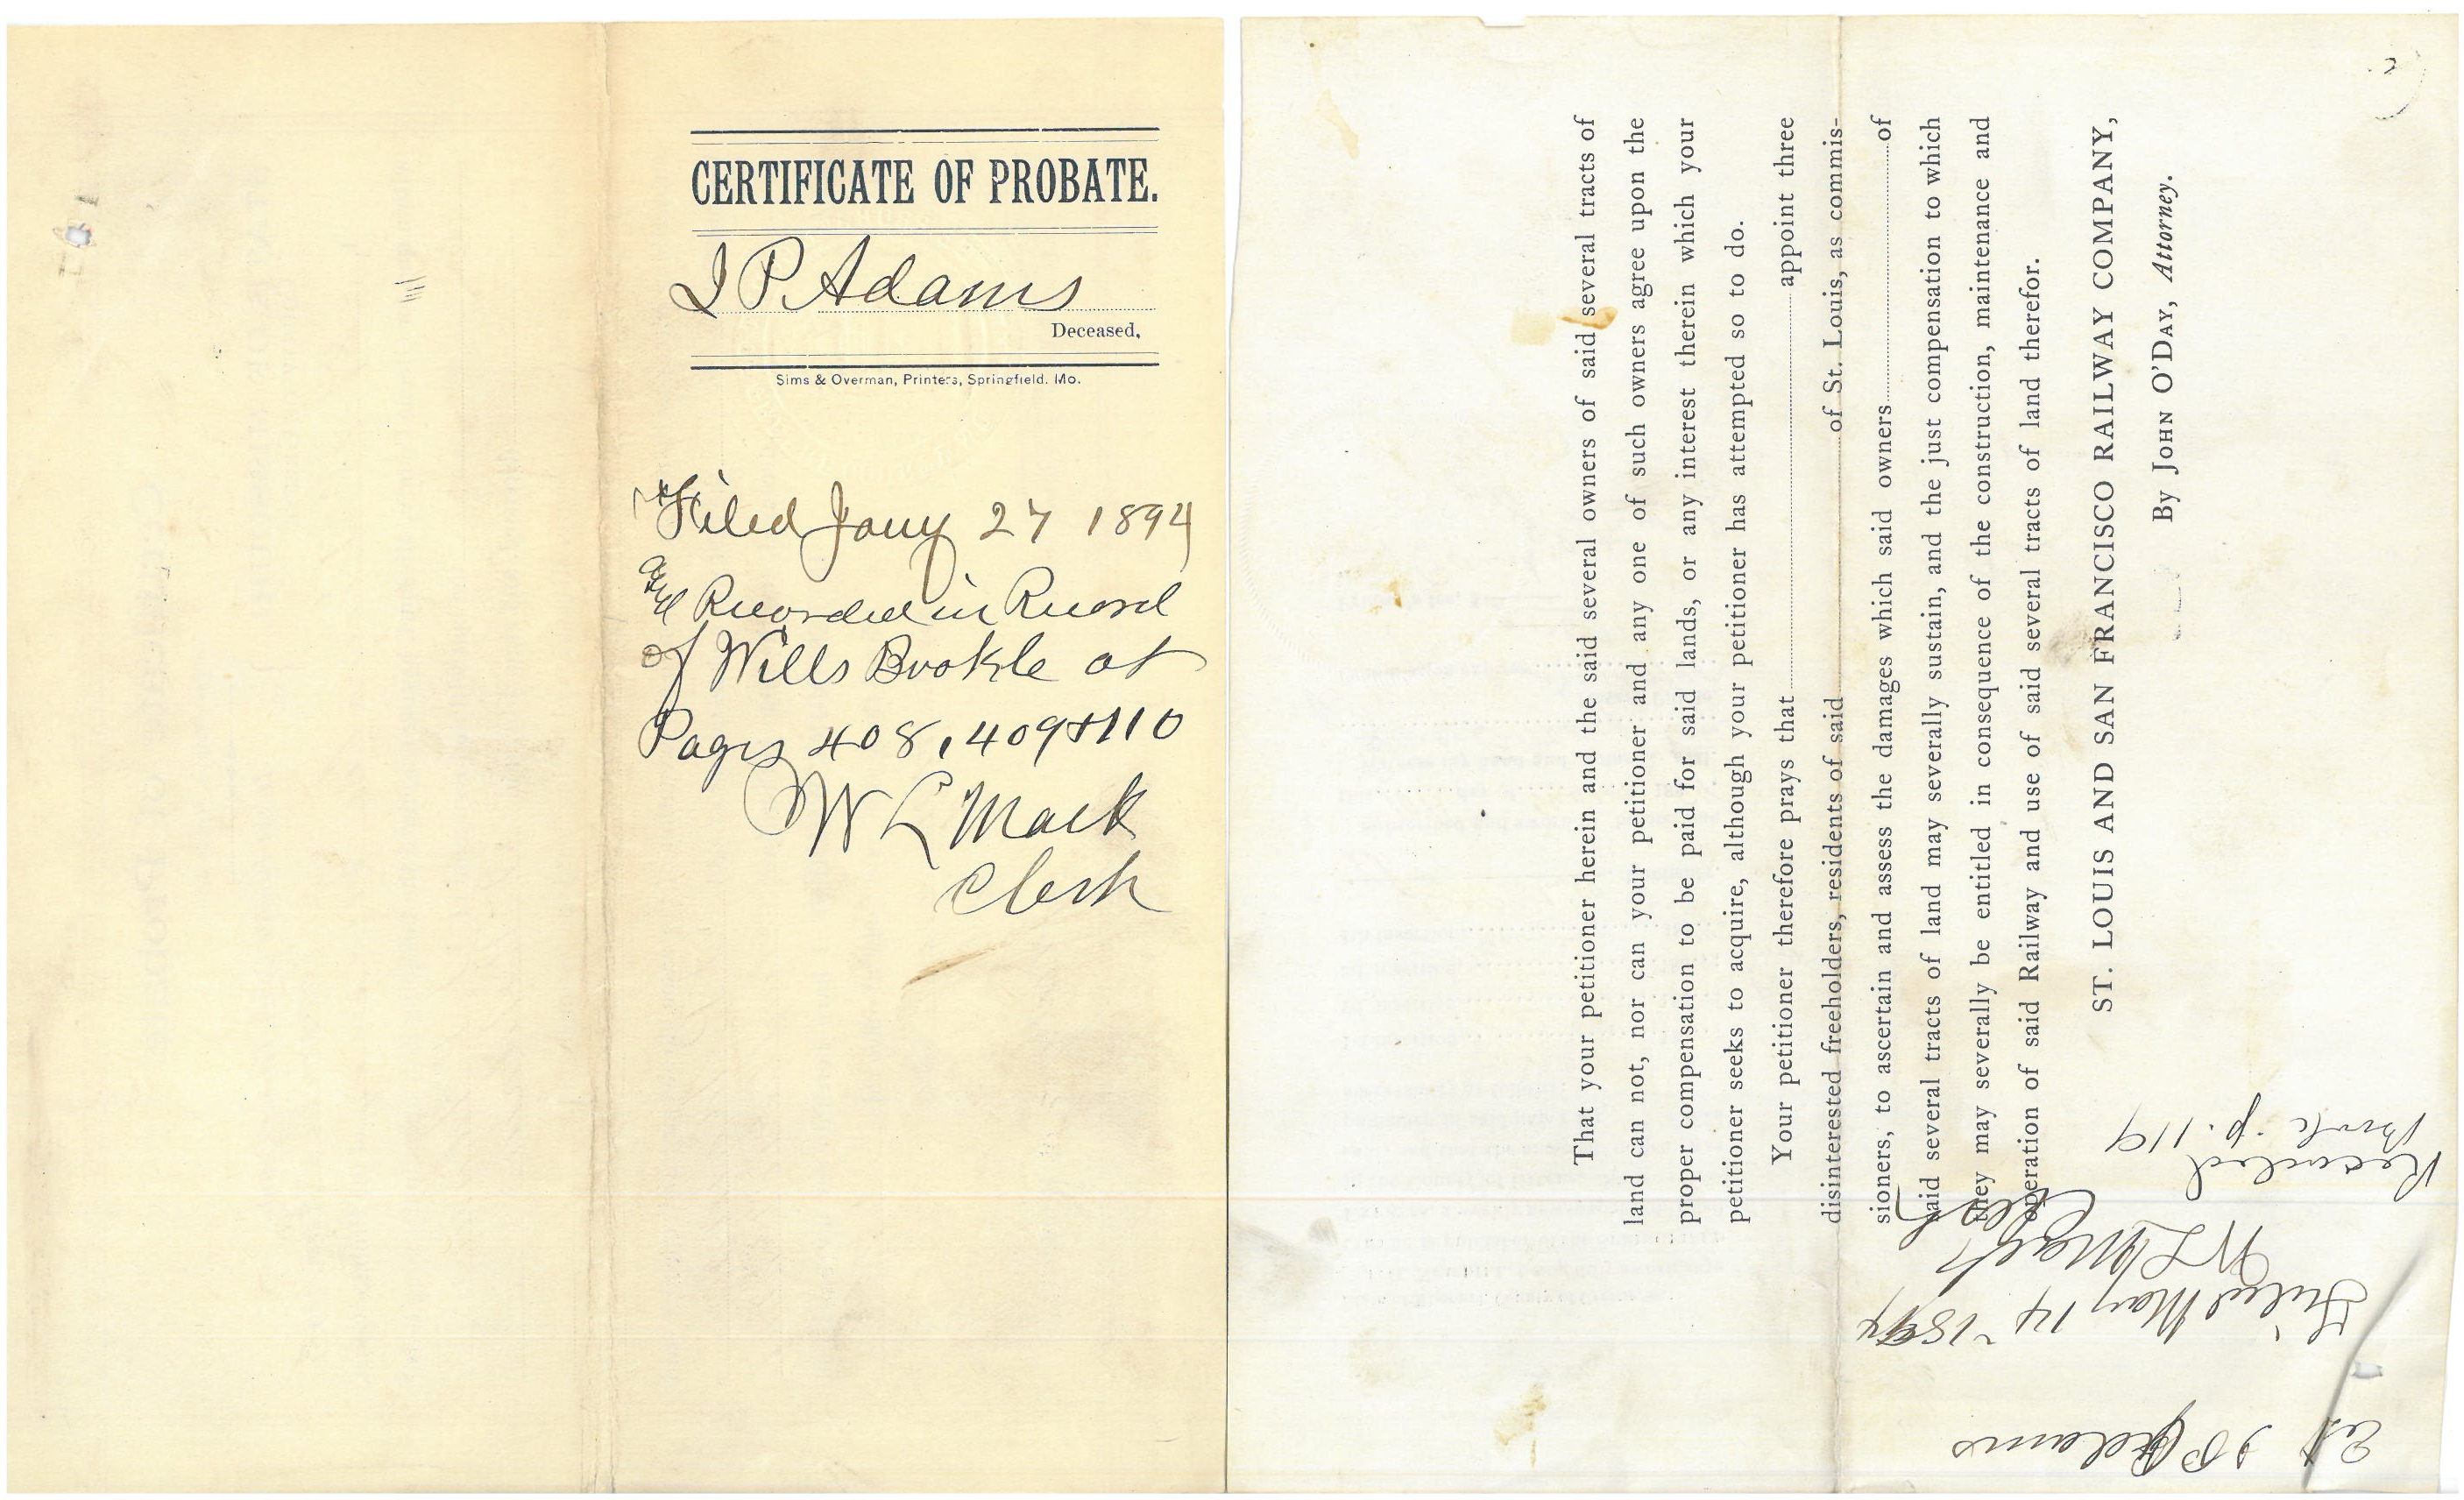 CERTIFICATE OF PROBATE.
I P Adams
Deceased,
Sims & Overman, Printers, Springfield. Mo.
Filed Jany 27 1894
and Recorded in Record
of Wills Book at
Pages 408, 409 + 110
W L Mack
Clerk
That your petitioner herein and the said several owners of said several tracts of
land can not, nor can your petitioner and any one of such owners agree upon the
proper compensation to be paid for said lands, or any interest therein which your
petitioner seeks to acquire, although your petitioner has attempted so to do.
Your petitioner therefore prays that appoint three
disinterested freeholders, residents of said of St. Louis, as commis-
sioners, to ascertain and assess the damages which said owners of
said several tracts of land may severally sustain, and the just compensation to which
they may severally be entitled in consequence of the construction, maintenance and
operation of said Railway and use of said several tracts of land therefor.
ST. LOUIS AND SAN FRANCISCO RAILWAY COMPANY,
By JOHN O'DAY, Attorney.
Est I P Adams
Filed May 14 1894
W L Mack
Clerk
Recorded
Book p. 119